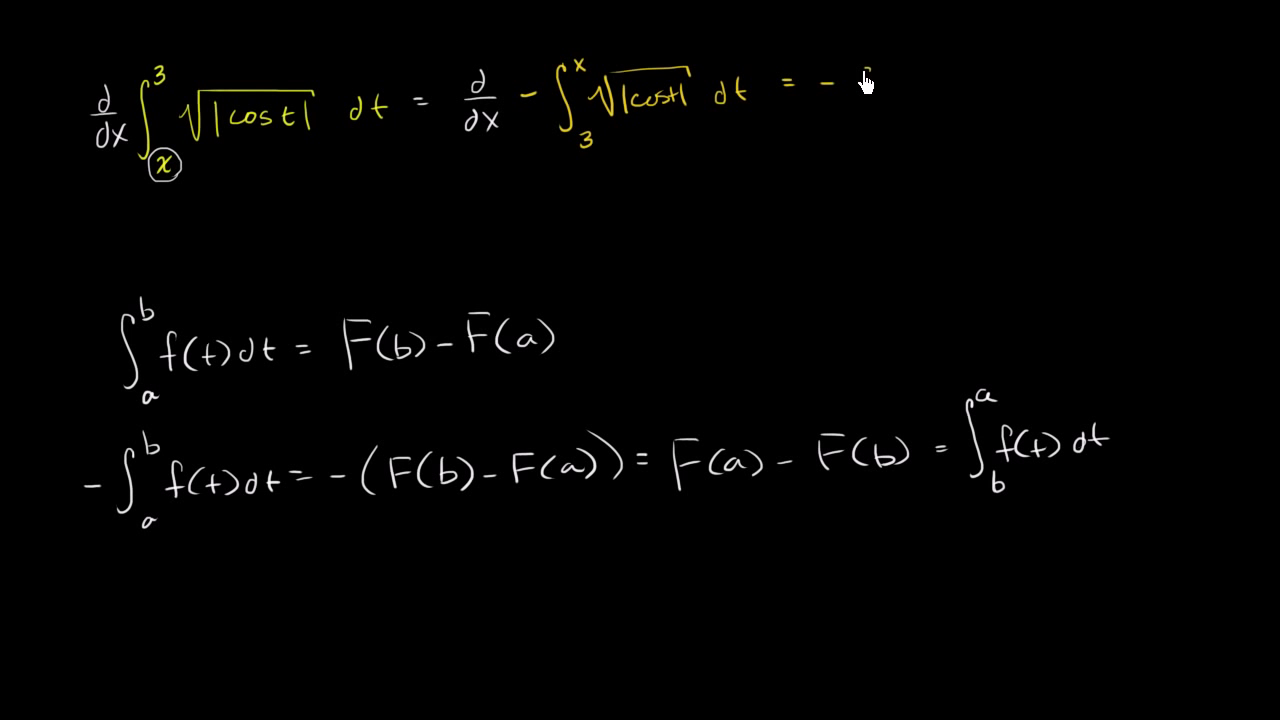 d/dx ∫_x^3 √|cos t| dt = d/dx - ∫_3^x √|cos t| dt = -
∫_a^b f(t) dt = F(b) - F(a)
- ∫_a^b f(t) dt = - (F(b) - F(a)) = F(a) - F(b) = ∫_b^a f(t) dt